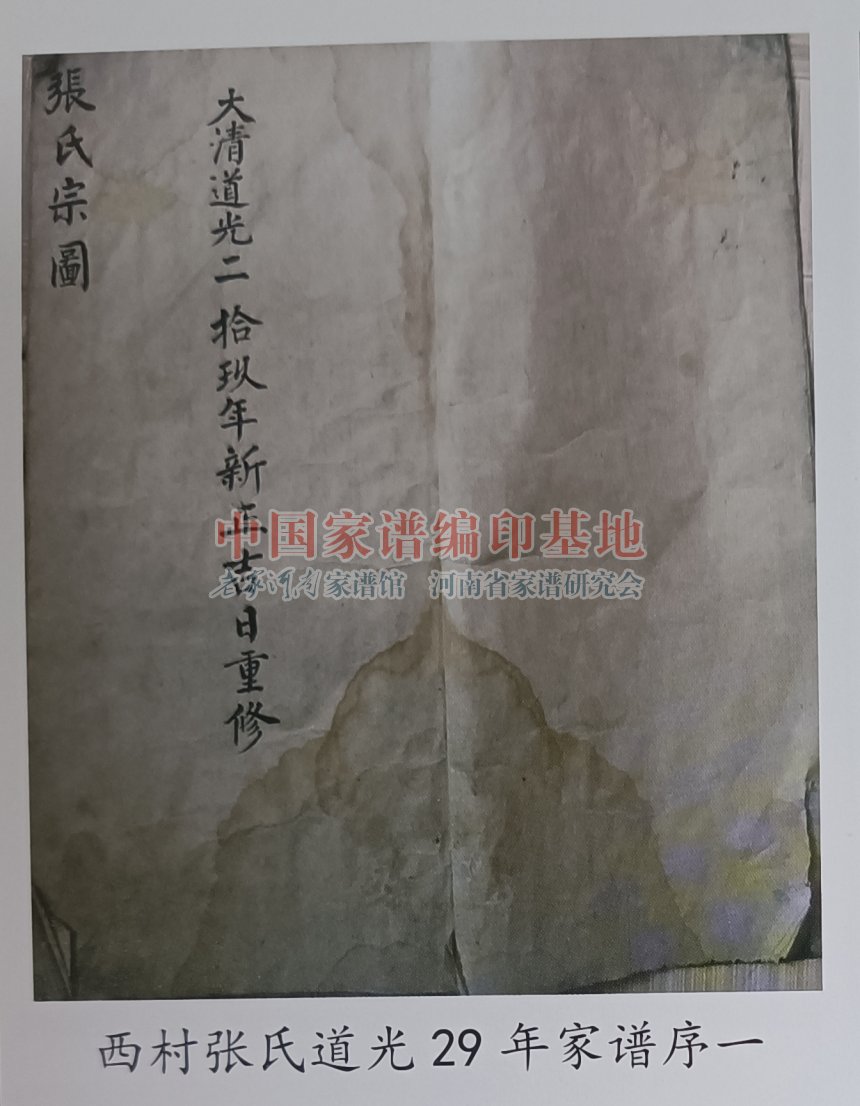 張氏宗圖
大清道光二拾玖年新正吉日重修
中国家谱编印基地
老家河南家谱馆 河南省家谱研究会
西村张氏道光29年家谱序一